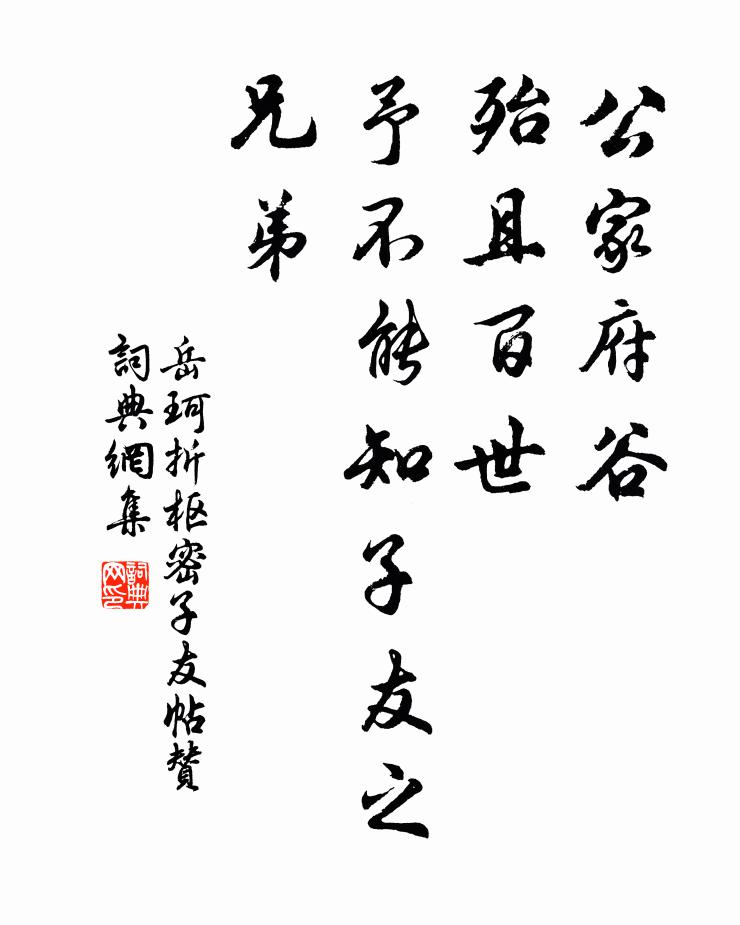 公家府谷
殆且百世
予不能知子友之
兄弟
岳珂折枢密子友帖赞
詞典網集
詞典网印